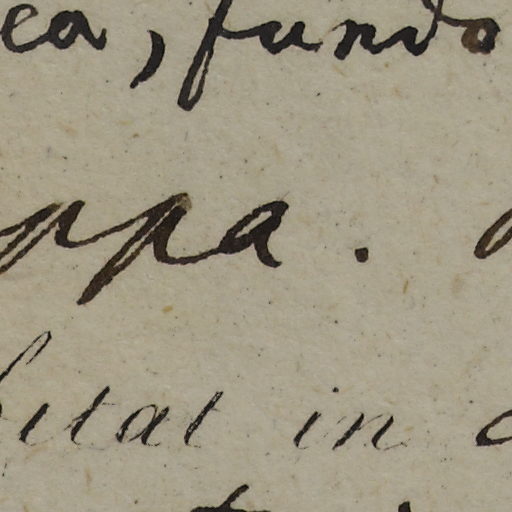 ea, fundo
ppa.
bitat in